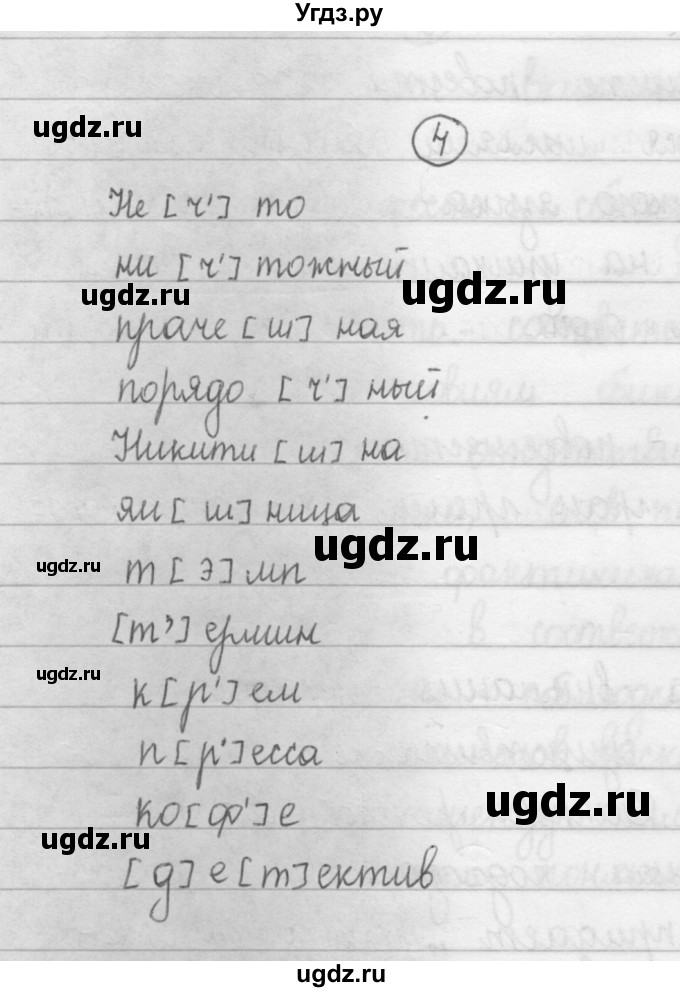 Угдз.ру
ugdz.ru
4
Не [ч'] то
ни [ч'] тожный
ugdz.ru
ugdz.ru
праче [ш] ная
порядо [ч'] ный
Никити [ш] на
яи [ш] ница
ugdz.ru
ugdz.ru
т [э] мп
[т'] ермин
ugdz.ru
к [р'] ем
п [р'] есса
ugdz.ru
ко [ф'] е
ugdz.ru
[д] е [т] ектив
ugdz.ru